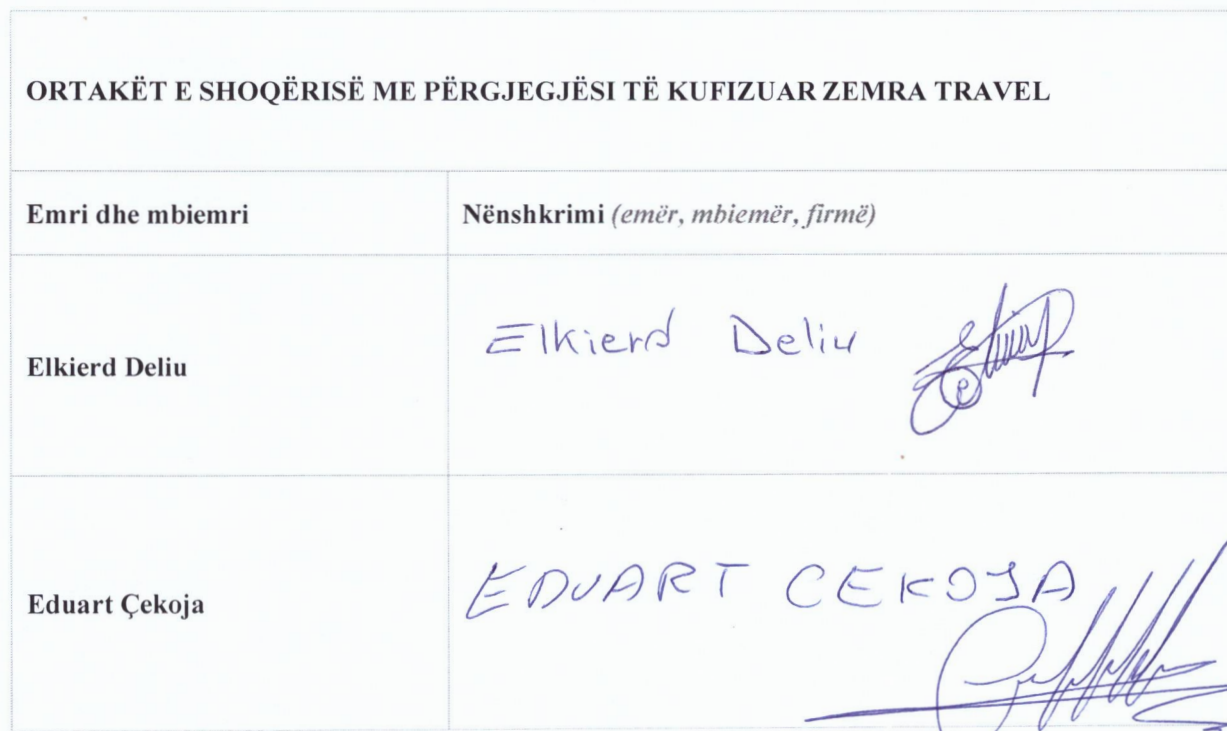 ORTAKËT E SHOQËRISË ME PËRGJEGJËSI TË KUFIZUAR ZEMRA TRAVEL
Emri dhe mbiemri
Nënshkrimi (emër, mbiemër, firmë)
Elkierd Deliu
Elkierd Deliu
Eduart Çekoja
EDUART CEKOJA